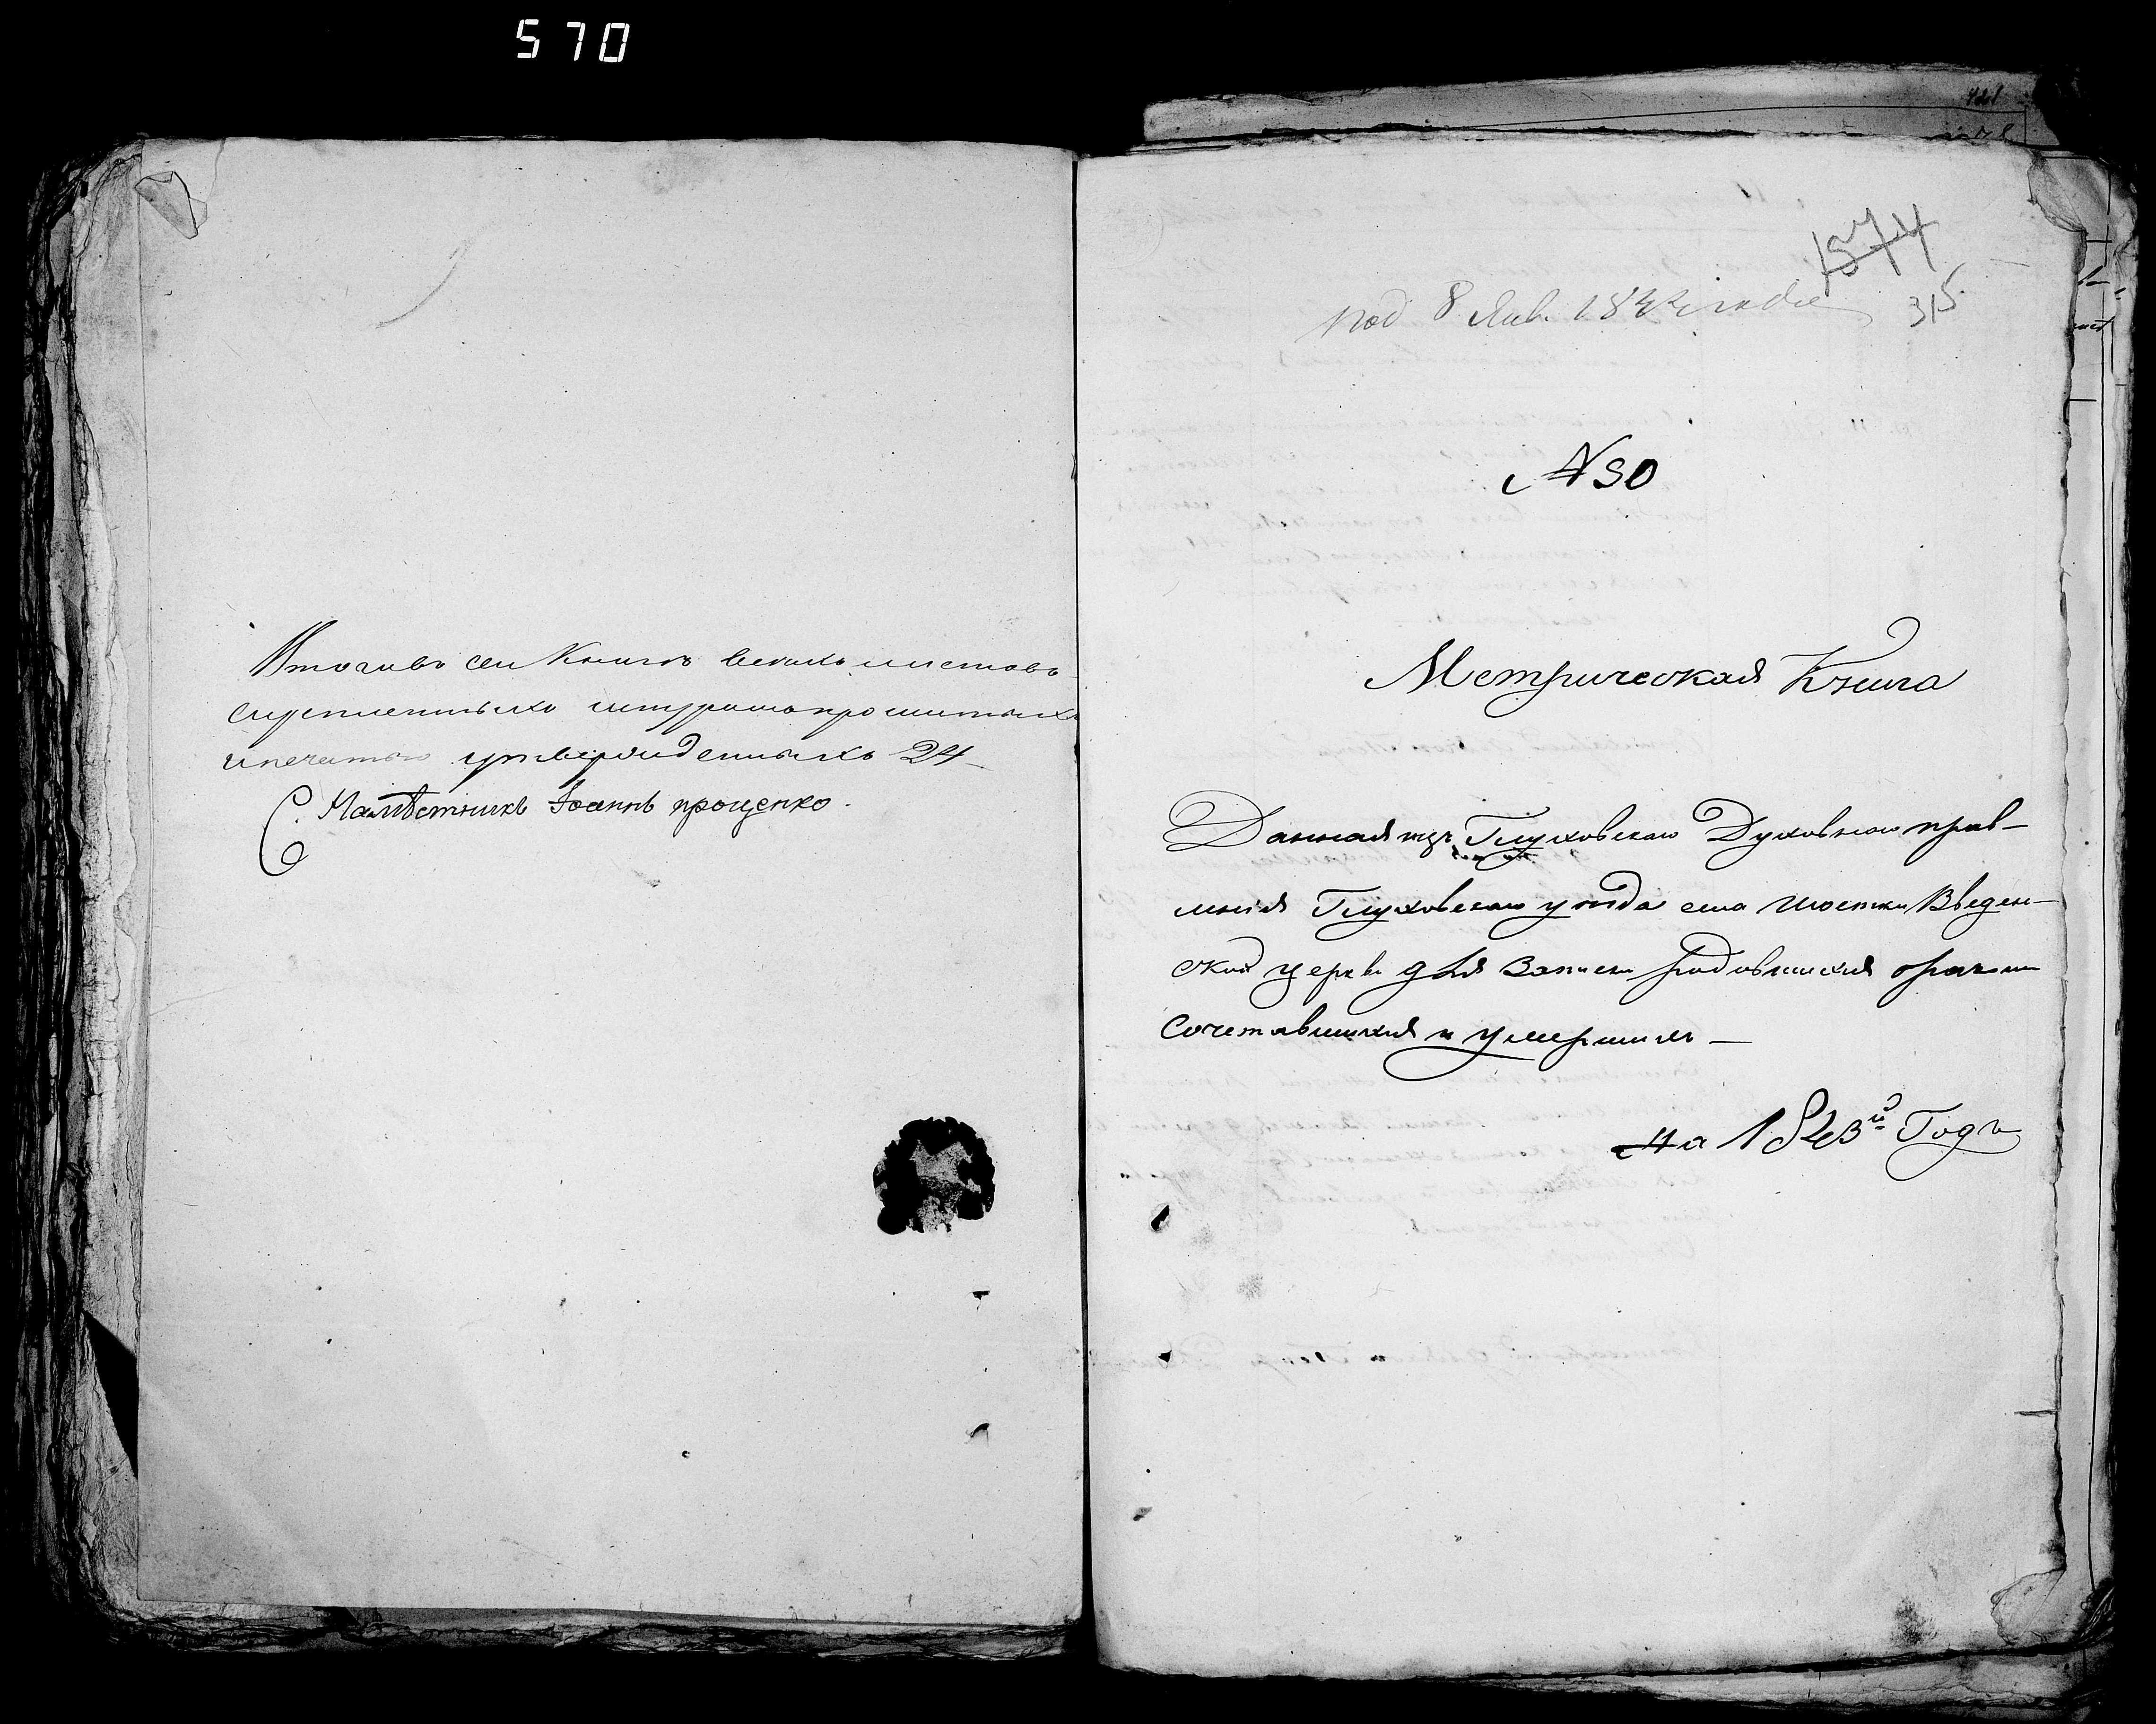 570
Итого въ сей Книгѣ всѣхъ листовъ
скрепленныхъ шнуромъ прошитыхъ
и печатью утвержденныхъ 24
С. Намѣстникъ Іоаннъ Проценко.
1574
315
под 8 Янв.
№ 30
Метрическая Книга
Данная изъ Глуховскаго Духовнаго прав-
ленія Глуховскаго уѣзда села Шостки Введен-
ской церкви для Записки родившихся бракомъ
Сочетавшихся и умершихъ —
На 1843й Годъ